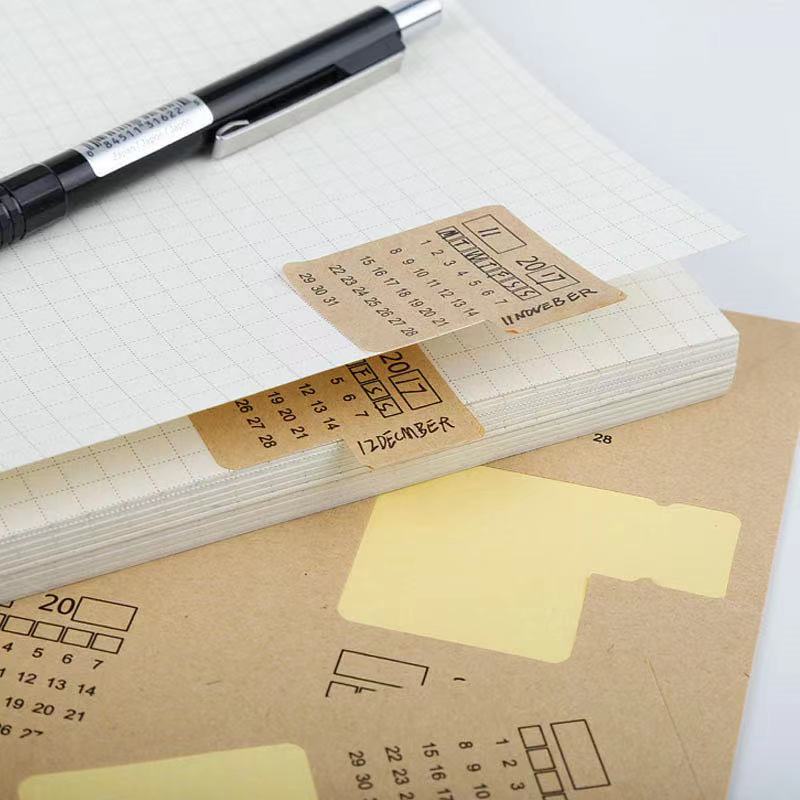 0 84511 31622
Japan / Japon / Japón
11
2017
M T W T F S S
1 2 3 4 5 6 7
8 9 10 11 12 13 14
15 16 17 18 19 20 21
22 23 24 25 26 27 28
29 30 31
11 NOVEBER
2017
T F S S
5 6 7
12 13 14
19 20 21
26 27 28
12 DECMBER
28
20
4 5 6 7
11 12 13 14
19 20 21
26 27
1 2 3
8 9 10
15 16 17
22 23
29 30